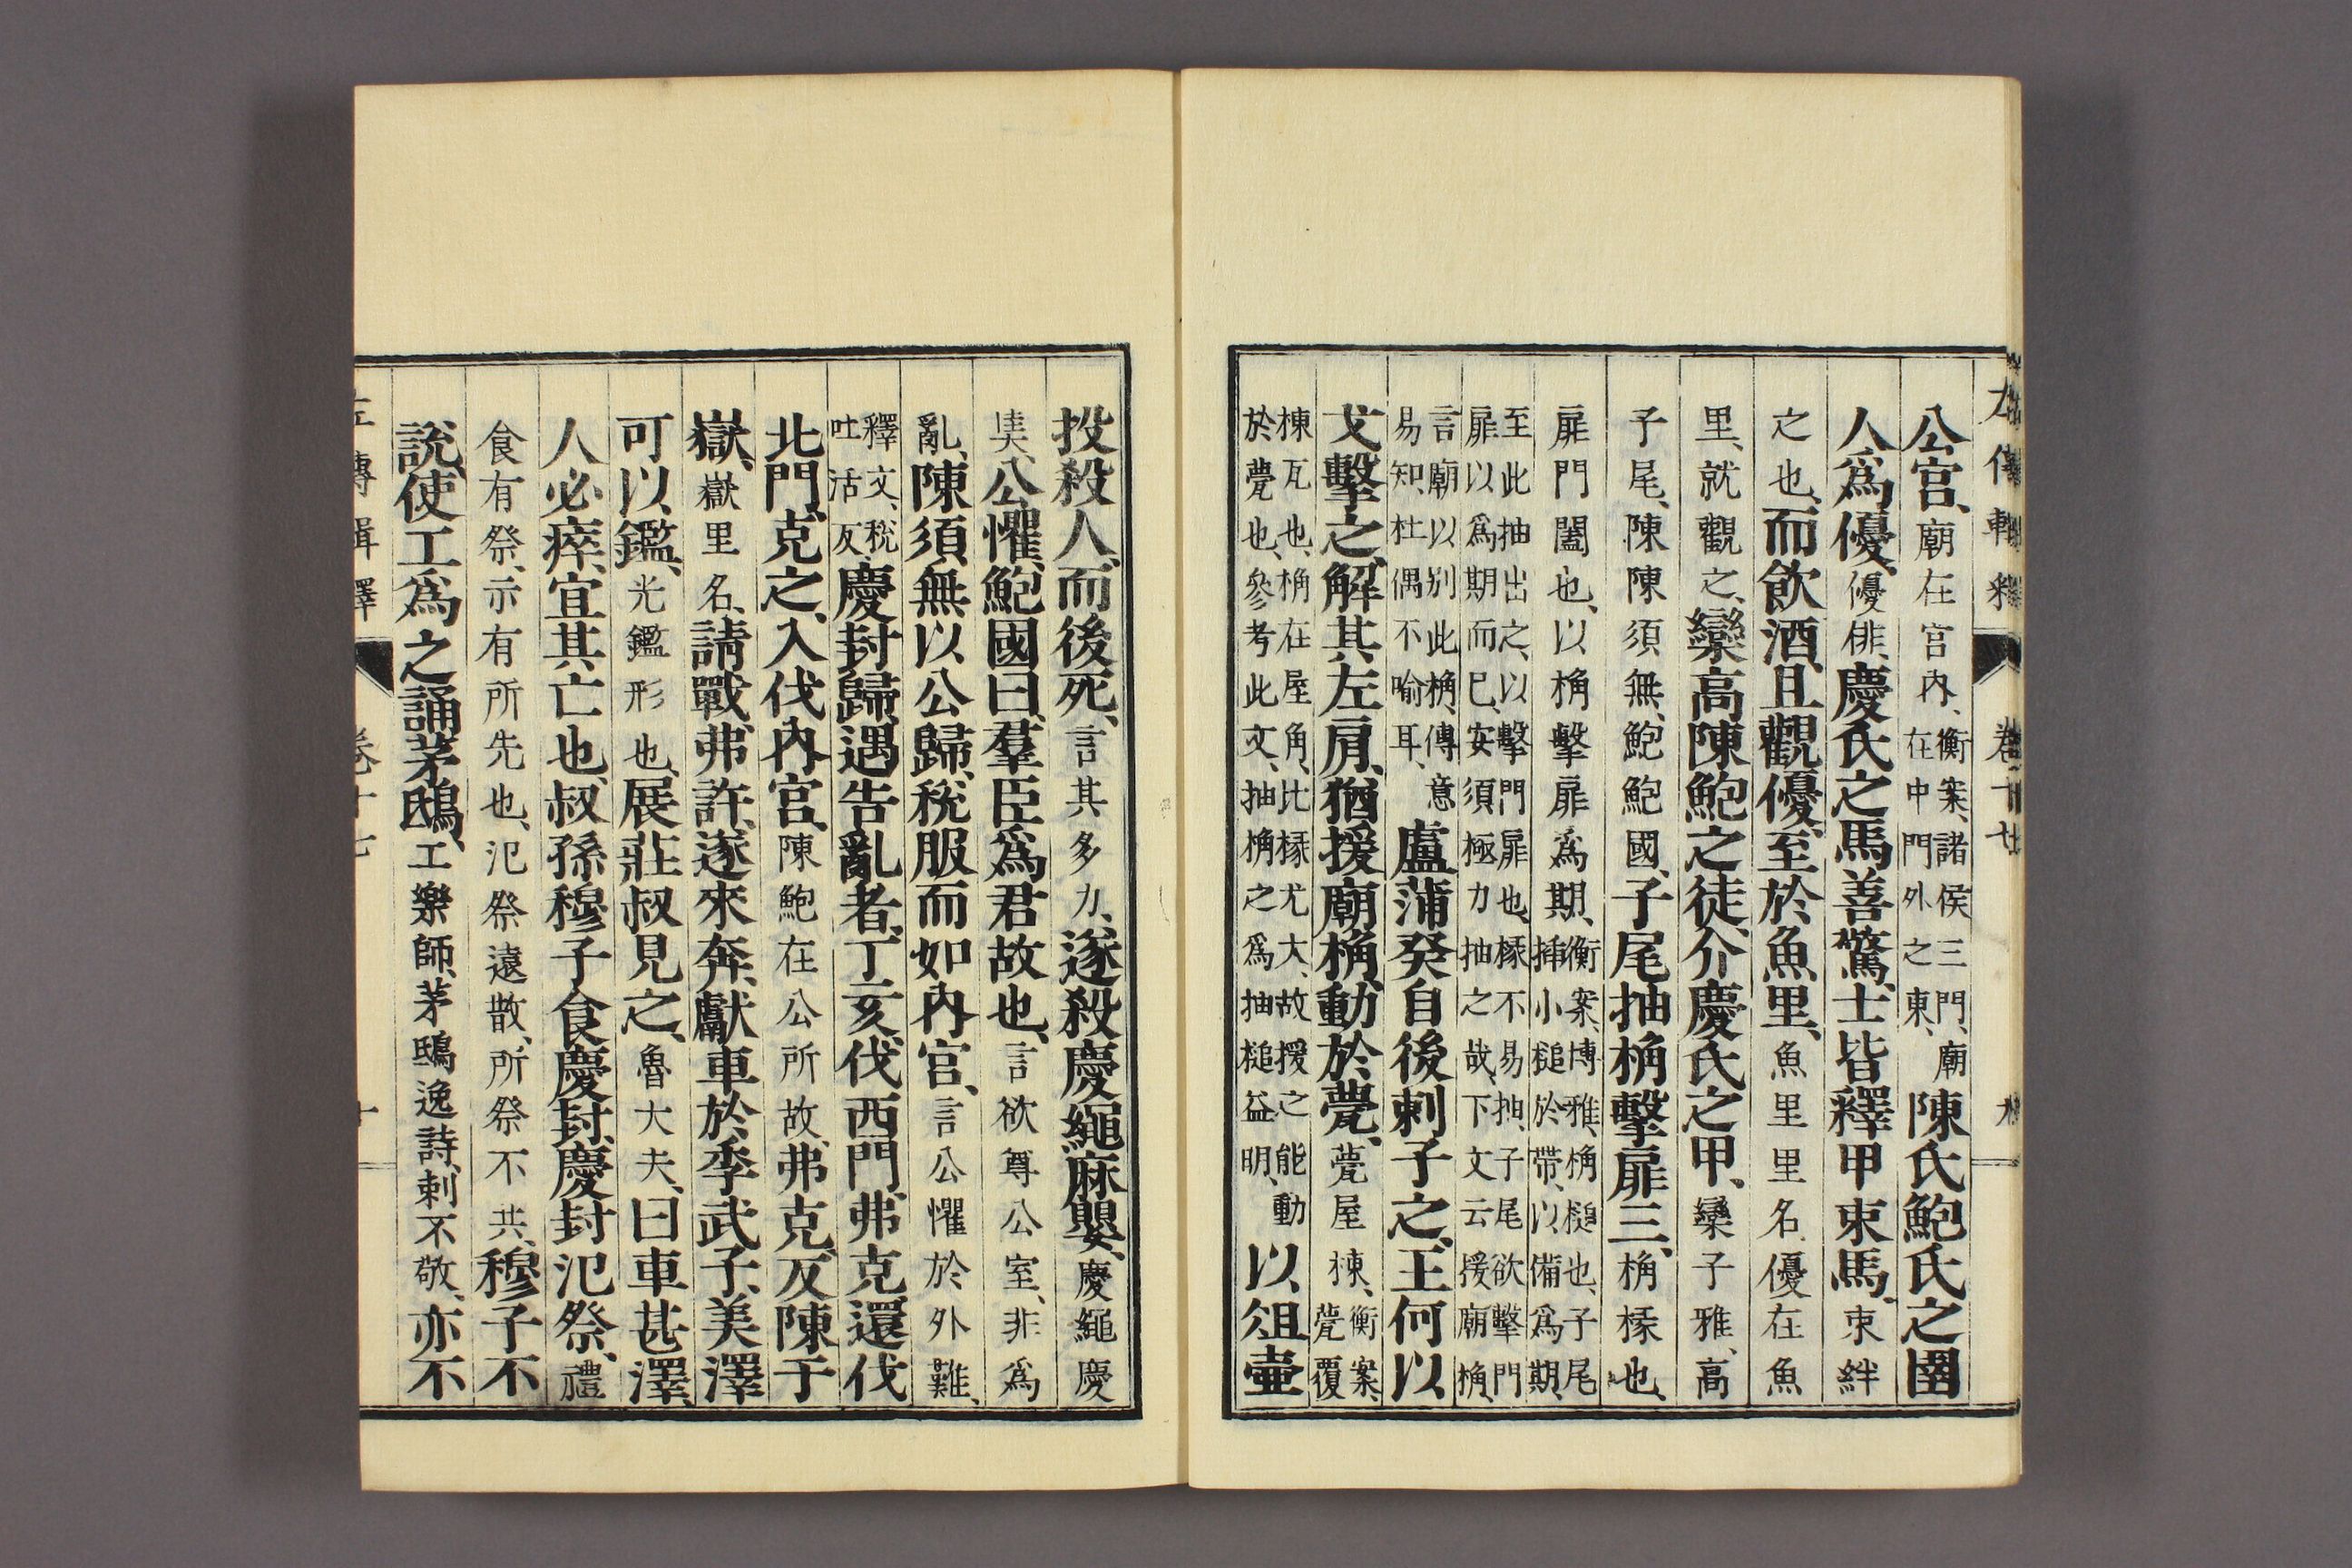 公宮、廟在宮内、衡案、諸侯三門、廟在中門外之東、陳氏鮑氏之圉
人爲優、優俳、慶氏之馬善驚、士皆釋甲束馬、束絆
之也、而飮酒、且觀優、至於魚里、魚里里名、優在魚
里、就觀之、欒高陳鮑之徒、介慶氏之甲、欒子雅、高
子尾、陳陳須無、鮑鮑國、子尾抽桷擊扉三、桷椽也、
扉門闔也、以桷擊扉爲期、衡案、博雅、桷槌也、子尾挿小槌於帶、以備爲期、
至此抽出之、以擊門扉也、椽不易抽、子尾欲擊門扉以爲期而已、安須極力抽之哉、下文云援廟桷、
言廟以别此桷、傳意易知、杜偶不喻耳、盧蒲癸自後刺子之、王何以
戈擊之、解其左肩、猶援廟桷、動於甍、甍屋棟、衡案、甍覆
棟瓦也、桷在屋角、比椽尤大、故援之能動於甍也、參考此文、抽桷之爲抽槌益明、以俎壷
投殺人、而後死、言其多力、遂殺慶繩麻嬰、慶繩慶
奊、公懼、鮑國曰、羣臣爲君故也、言欲尊公室、非爲
亂、陳須無以公歸、稅服而如内宮、言公懼於外難、
釋文、稅吐活反、慶封歸、遇告亂者、丁亥、伐西門、弗克、還伐
北門、克之、入伐内宮、陳鮑在公所故、弗克、反陳于
嶽、嶽里名、請戰、弗許、遂來奔、獻車於季武子、美澤
可以鑑、光鑑形也、展莊叔見之、魯大夫、曰車甚澤、
人必瘁、宜其亡也、叔孫穆子食慶封、慶封氾祭、禮
食有祭、示有所先也、氾祭遠散、所祭不共、穆子不
說、使工爲之誦茅鴟、工樂師、茅鴟逸詩、刺不敬、亦不